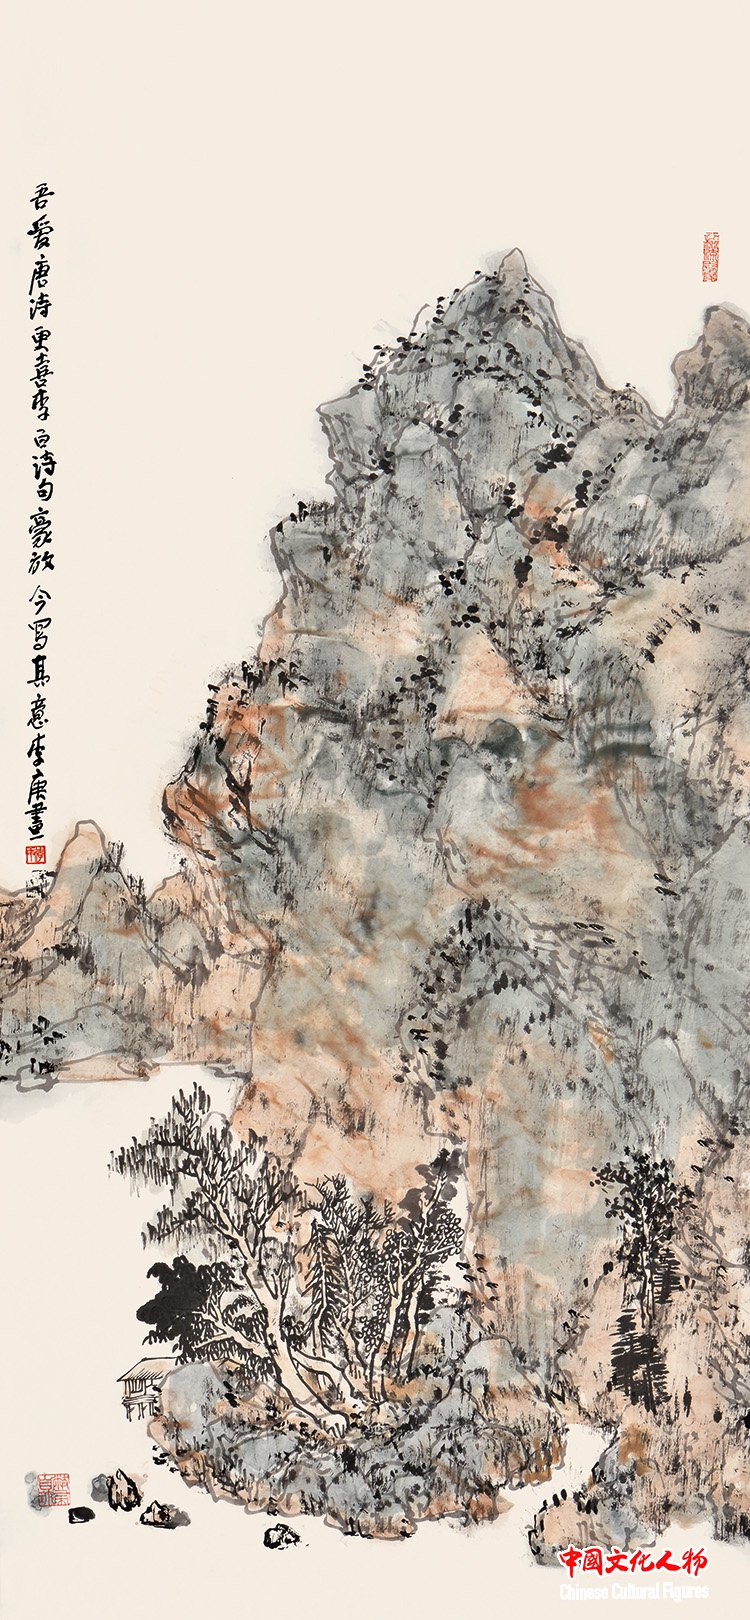 吾爱唐诗更喜李白诗句豪放今写其意李庚画
中国文化人物
Chinese Cultural Figures